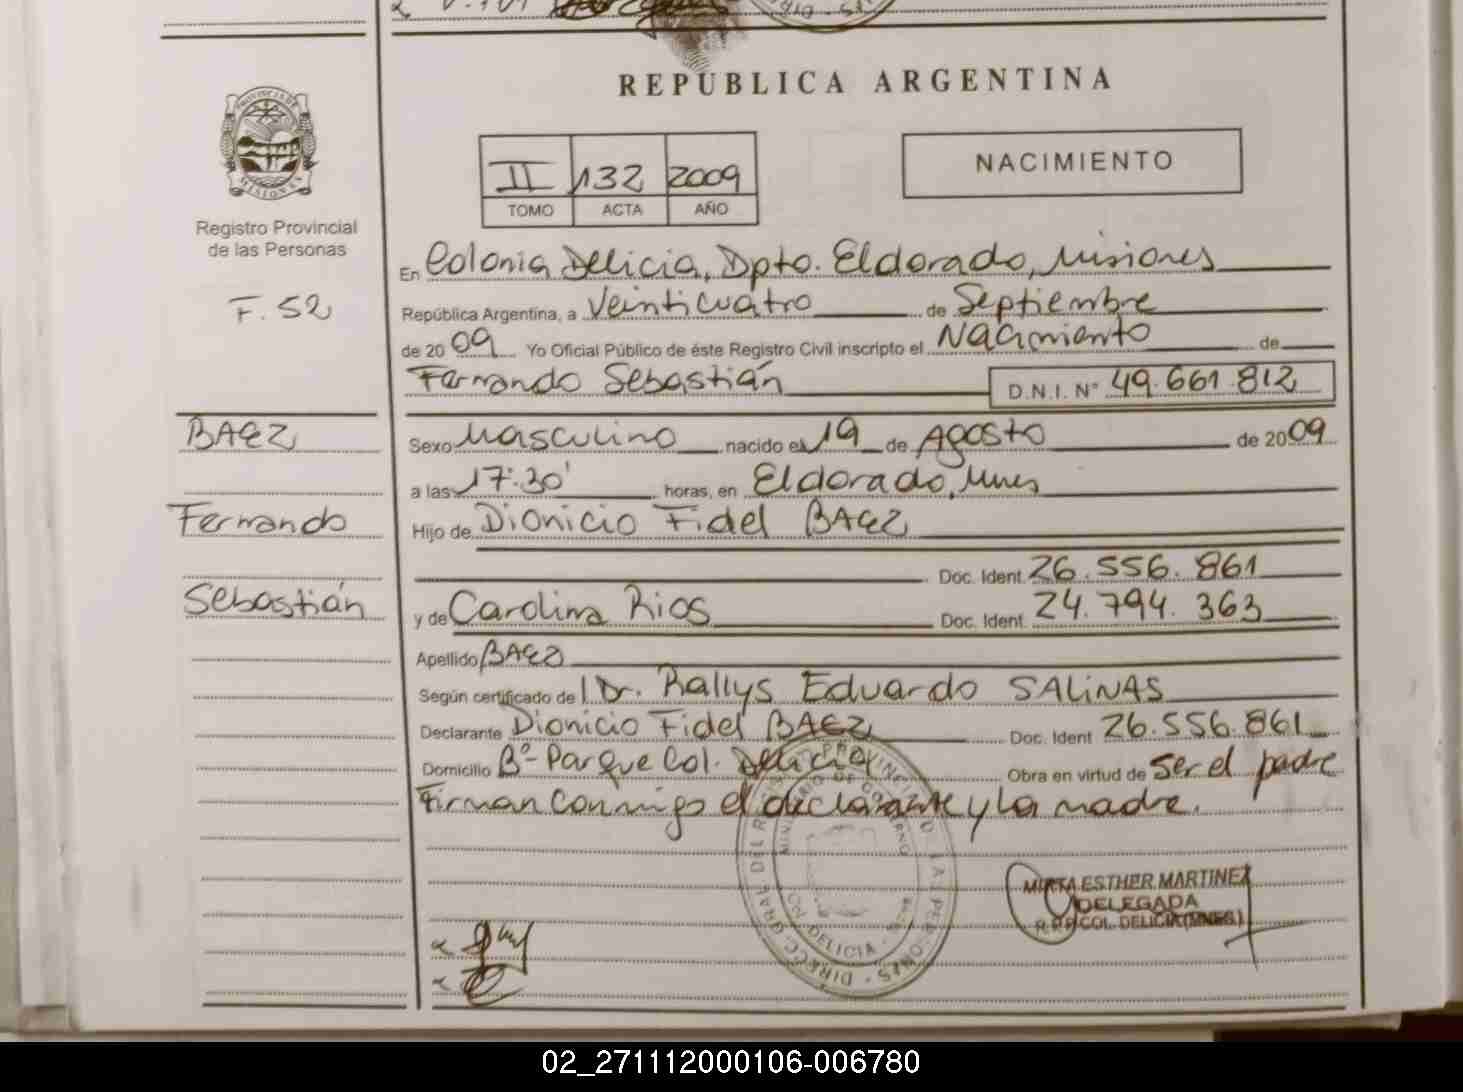 REPUBLICA ARGENTINA
PROVINCIA DE
MISIONES
Registro Provincial
de las Personas
F. 52
II 132 2009
TOMO ACTA AÑO
NACIMIENTO
En Colonia Delicia, Dpto. Eldorado, Misiones
República Argentina, a Veinticuatro de Septiembre
de 2009 Yo Oficial Público de éste Registro Civil inscripto el Nacimiento de
Fernando Sebastián D.N.I. N° 49.661.812
BAEZ
Fernando
Sebastián
Sexo Masculino nacido el 19 de Agosto de 2009
a las 17:30' horas, en Eldorado, Mnes
Hijo de Dionicio Fidel BAEZ
Doc. Ident. 26.556.861
y de Carolina Rios Doc. Ident. 24.794.363
Apellido BAEZ
Según certificado de Dr. Rallys Eduardo SALINAS
Declarante Dionicio Fidel BAEZ Doc. Ident 26.556.861
Domicilio Bº Parque Col. Delicia Obra en virtud de Ser el padre
Firman conmigo el declarante y la madre.
MIRTA ESTHER MARTINEZ
DELEGADA
R.P.P. COL. DELICIA (MNES.)
02_271112000106-006780